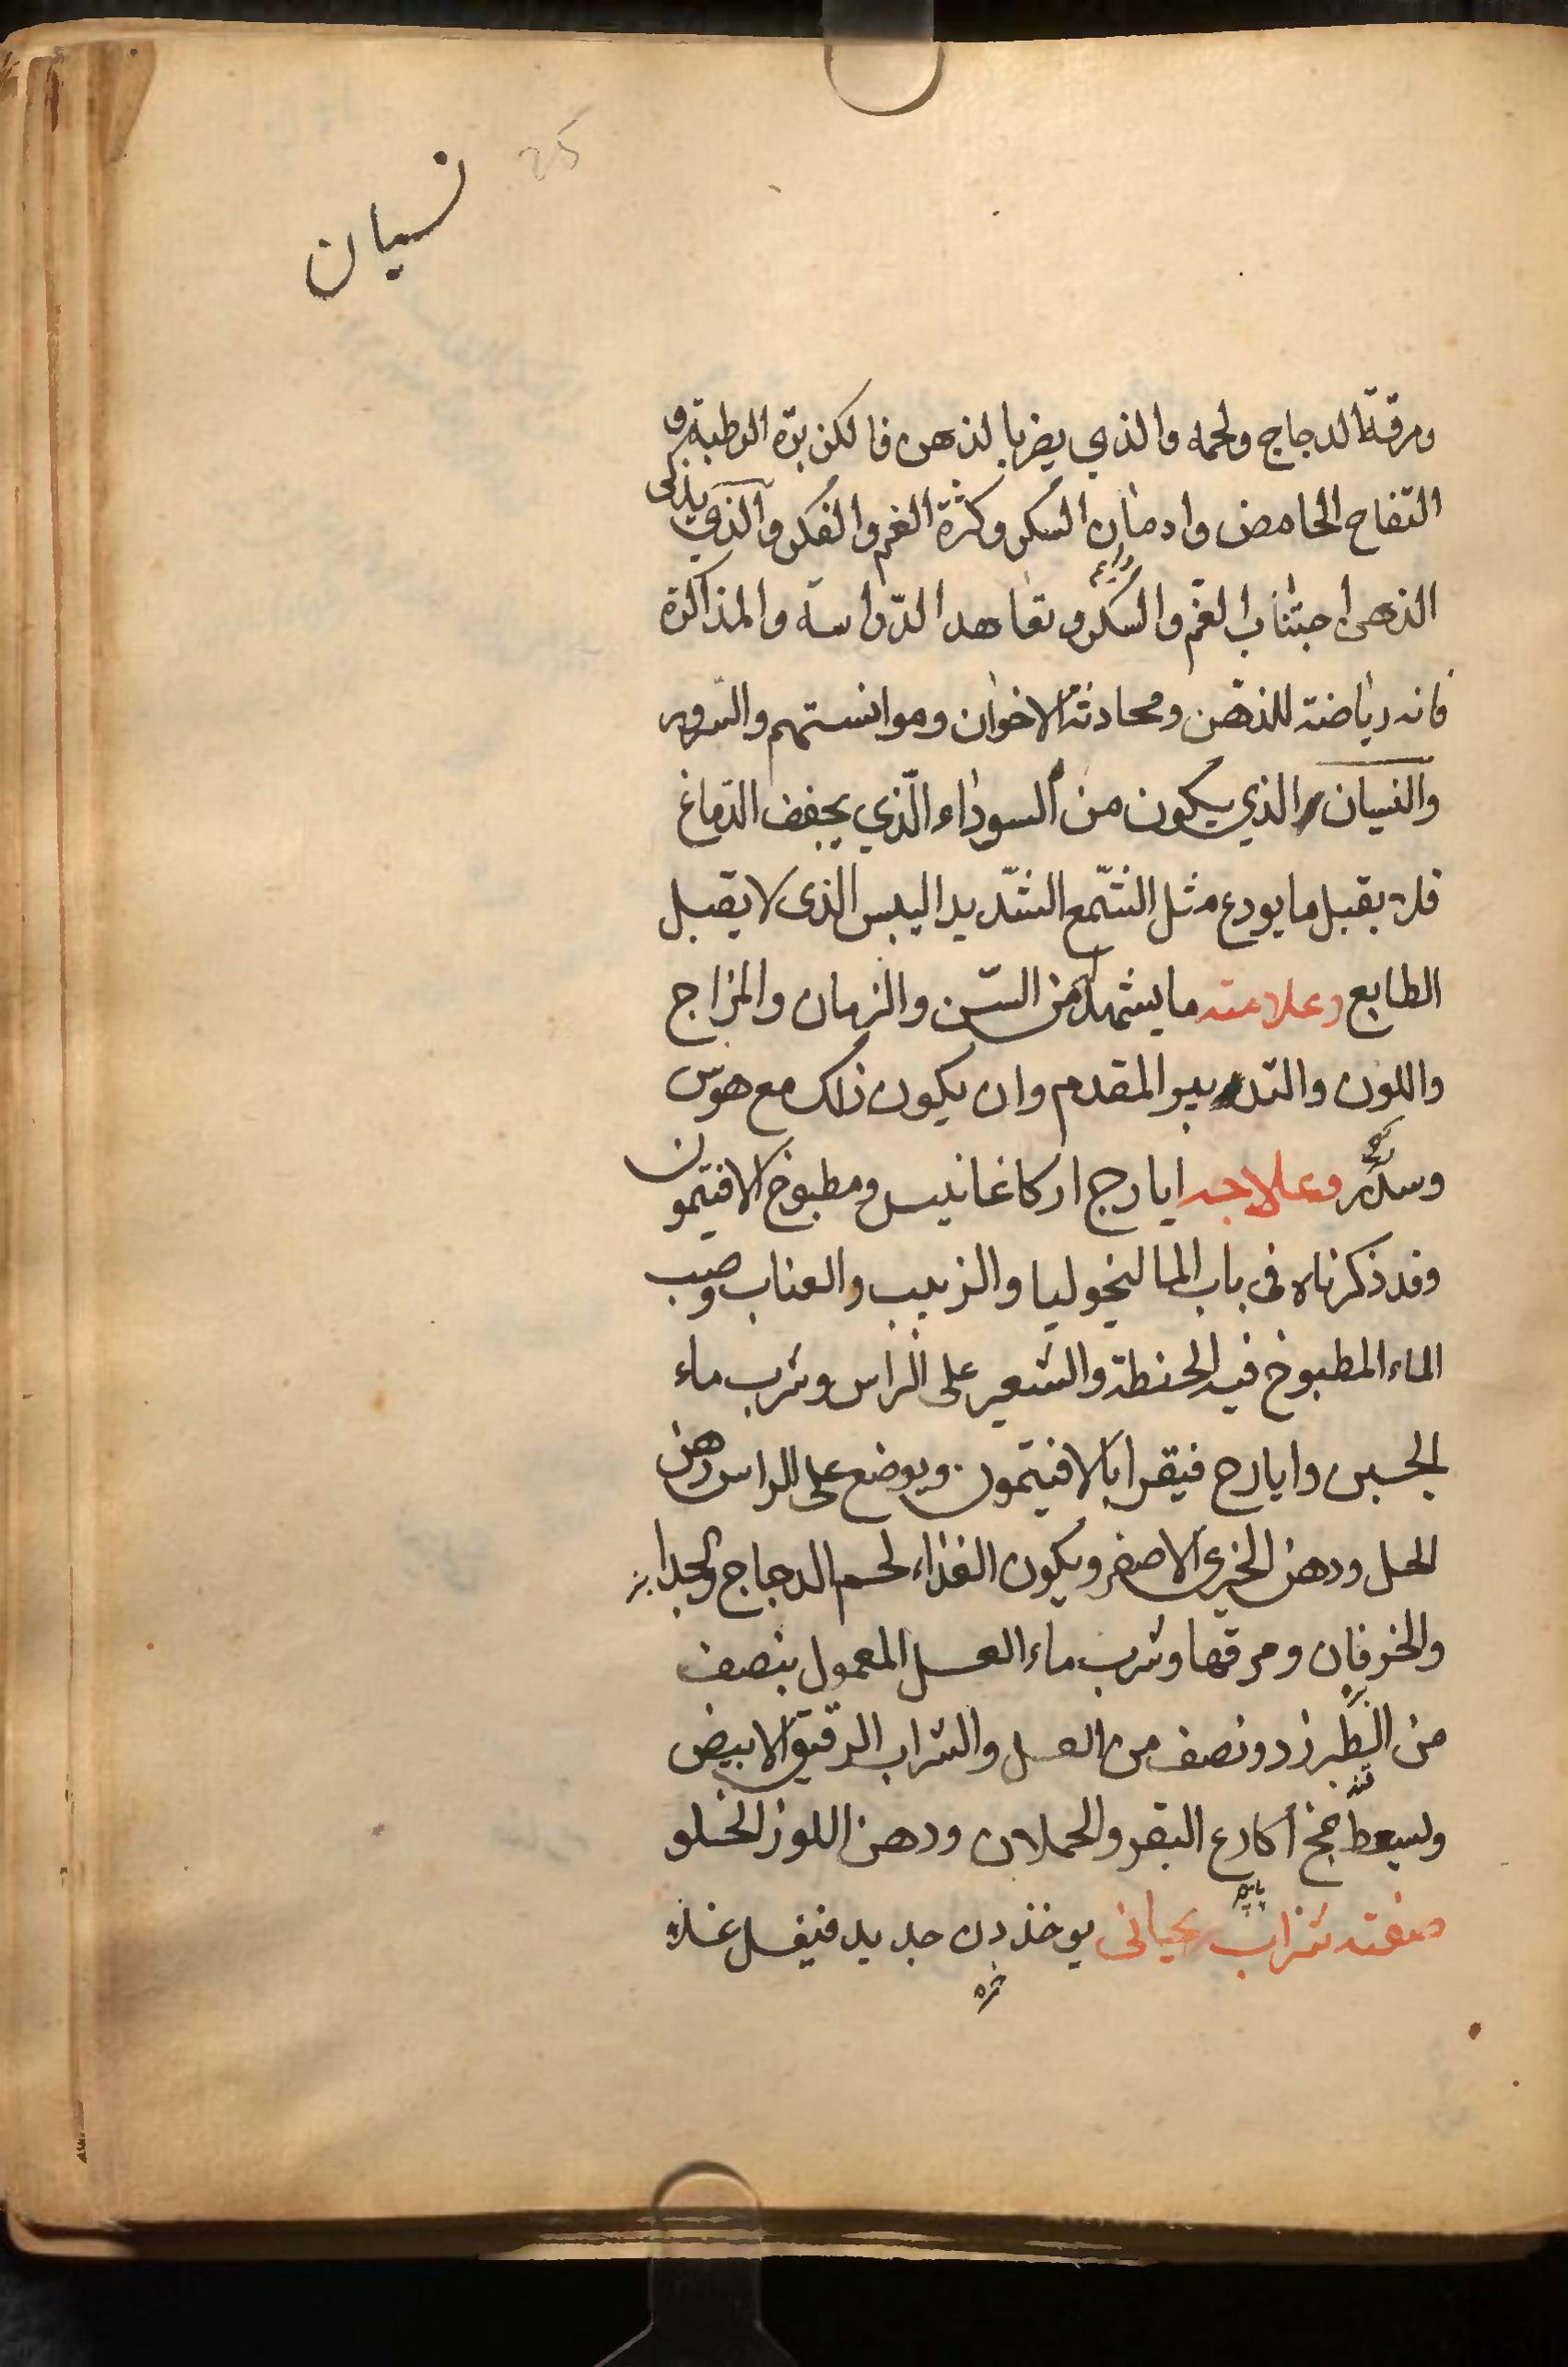 25
نسيان
ومرقة الدجاج ولحمه والذي يضر بالذهن فالكزبرة الرطبة و
التفاح الحامض وادمان السكر وكثرة الغم والفكر والذي يذكى
الذهن اجتناب الغم والسكر وتعاهد الدراسة والمذاكرة
فانه رياضة للذهن ومحادثة الاخوان وموانستهم والسرور
والنسيان الذي يكون من السوداء الذي يجفف الدماغ
فلا يقبل ما يودع مثل الشمع الشديد اليبس الذى لا يقبل
الطابع وعلامته ما يشهد له من السن والزمان والمزاج
واللون والتدبير المقدم وان يكون ذلك مع هوس
وسهر وعلاجه ايارج اركاغانيس ومطبوخ الافتيمون
وقد ذكرناه فى باب المالنخوليا والزبيب والعناب وصب
الماء المطبوخ فيه الحنطة والشعير على الراس وشرب ماء
الجبن وايارج فيقرا بالافتيمون ويوضع على الراس دهن
الحل ودهن الخيري الاصفر ويكون الغذاء لحم الدجاج والجدا
والخرفان ومرقها وشرب ماء العسل المعمول بنصف
من الطبرزد ونصف من العسل والشراب الرقيق الابيض
ويسعط بمخ أكارع البقر والحملان ودهن اللوز الحلو
صفة شراب ريحانى يوخذ دن جديد فيغسل غسله